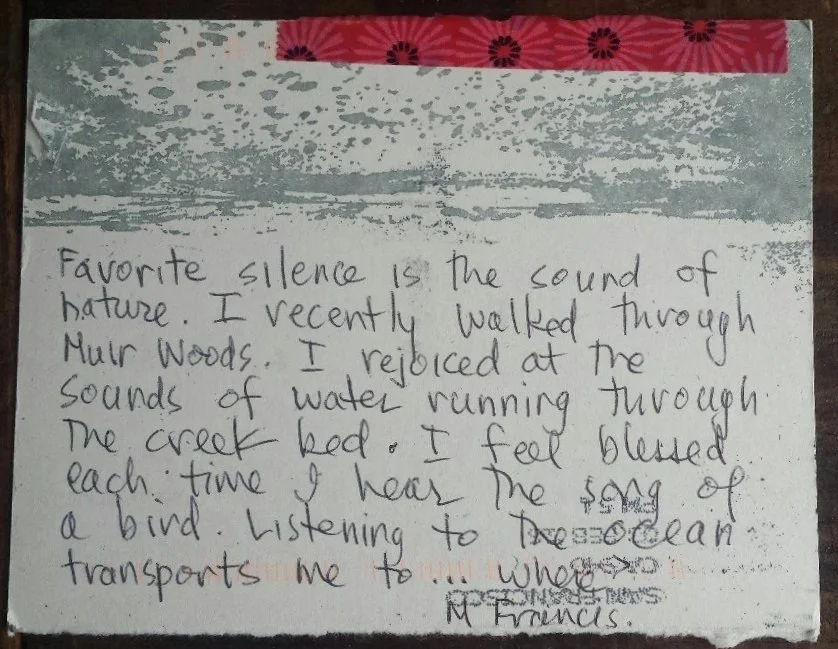 Favorite silence is the sound of
nature. I recently walked through
Muir Woods. I rejoiced at the
sounds of water running through
The creek bed. I feel blessed
each time I hear the song of
a bird. Listening to the ocean
transports me to... where
M Francis.